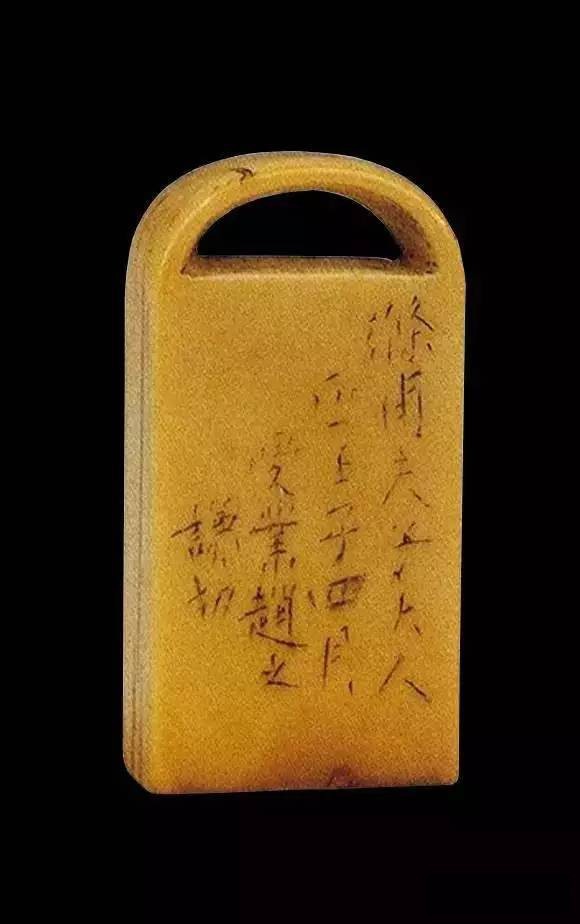 滌甫夫子大人
正壬子四月
受業趙之
謙